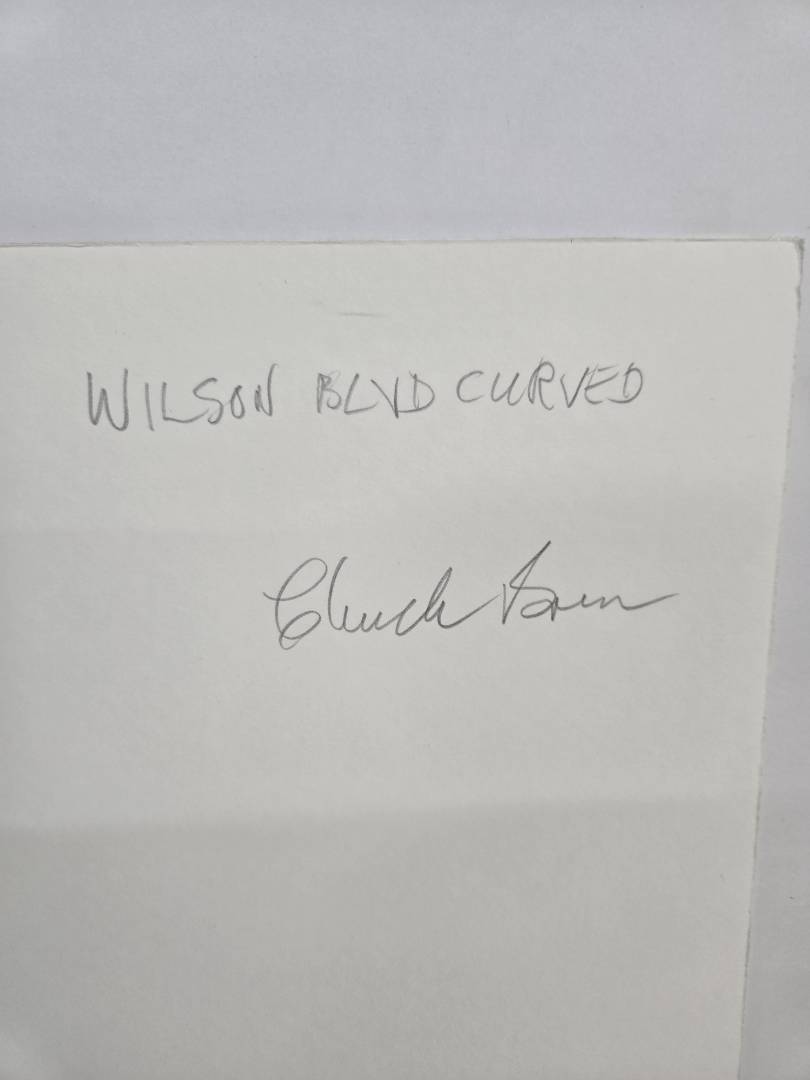 WILSON BLVD CURVED
Chuck